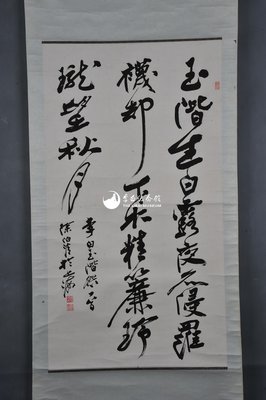 玉階生白露夜久侵羅
襪却下水精簾玲
瓏望秋月
李白玉階怨一首